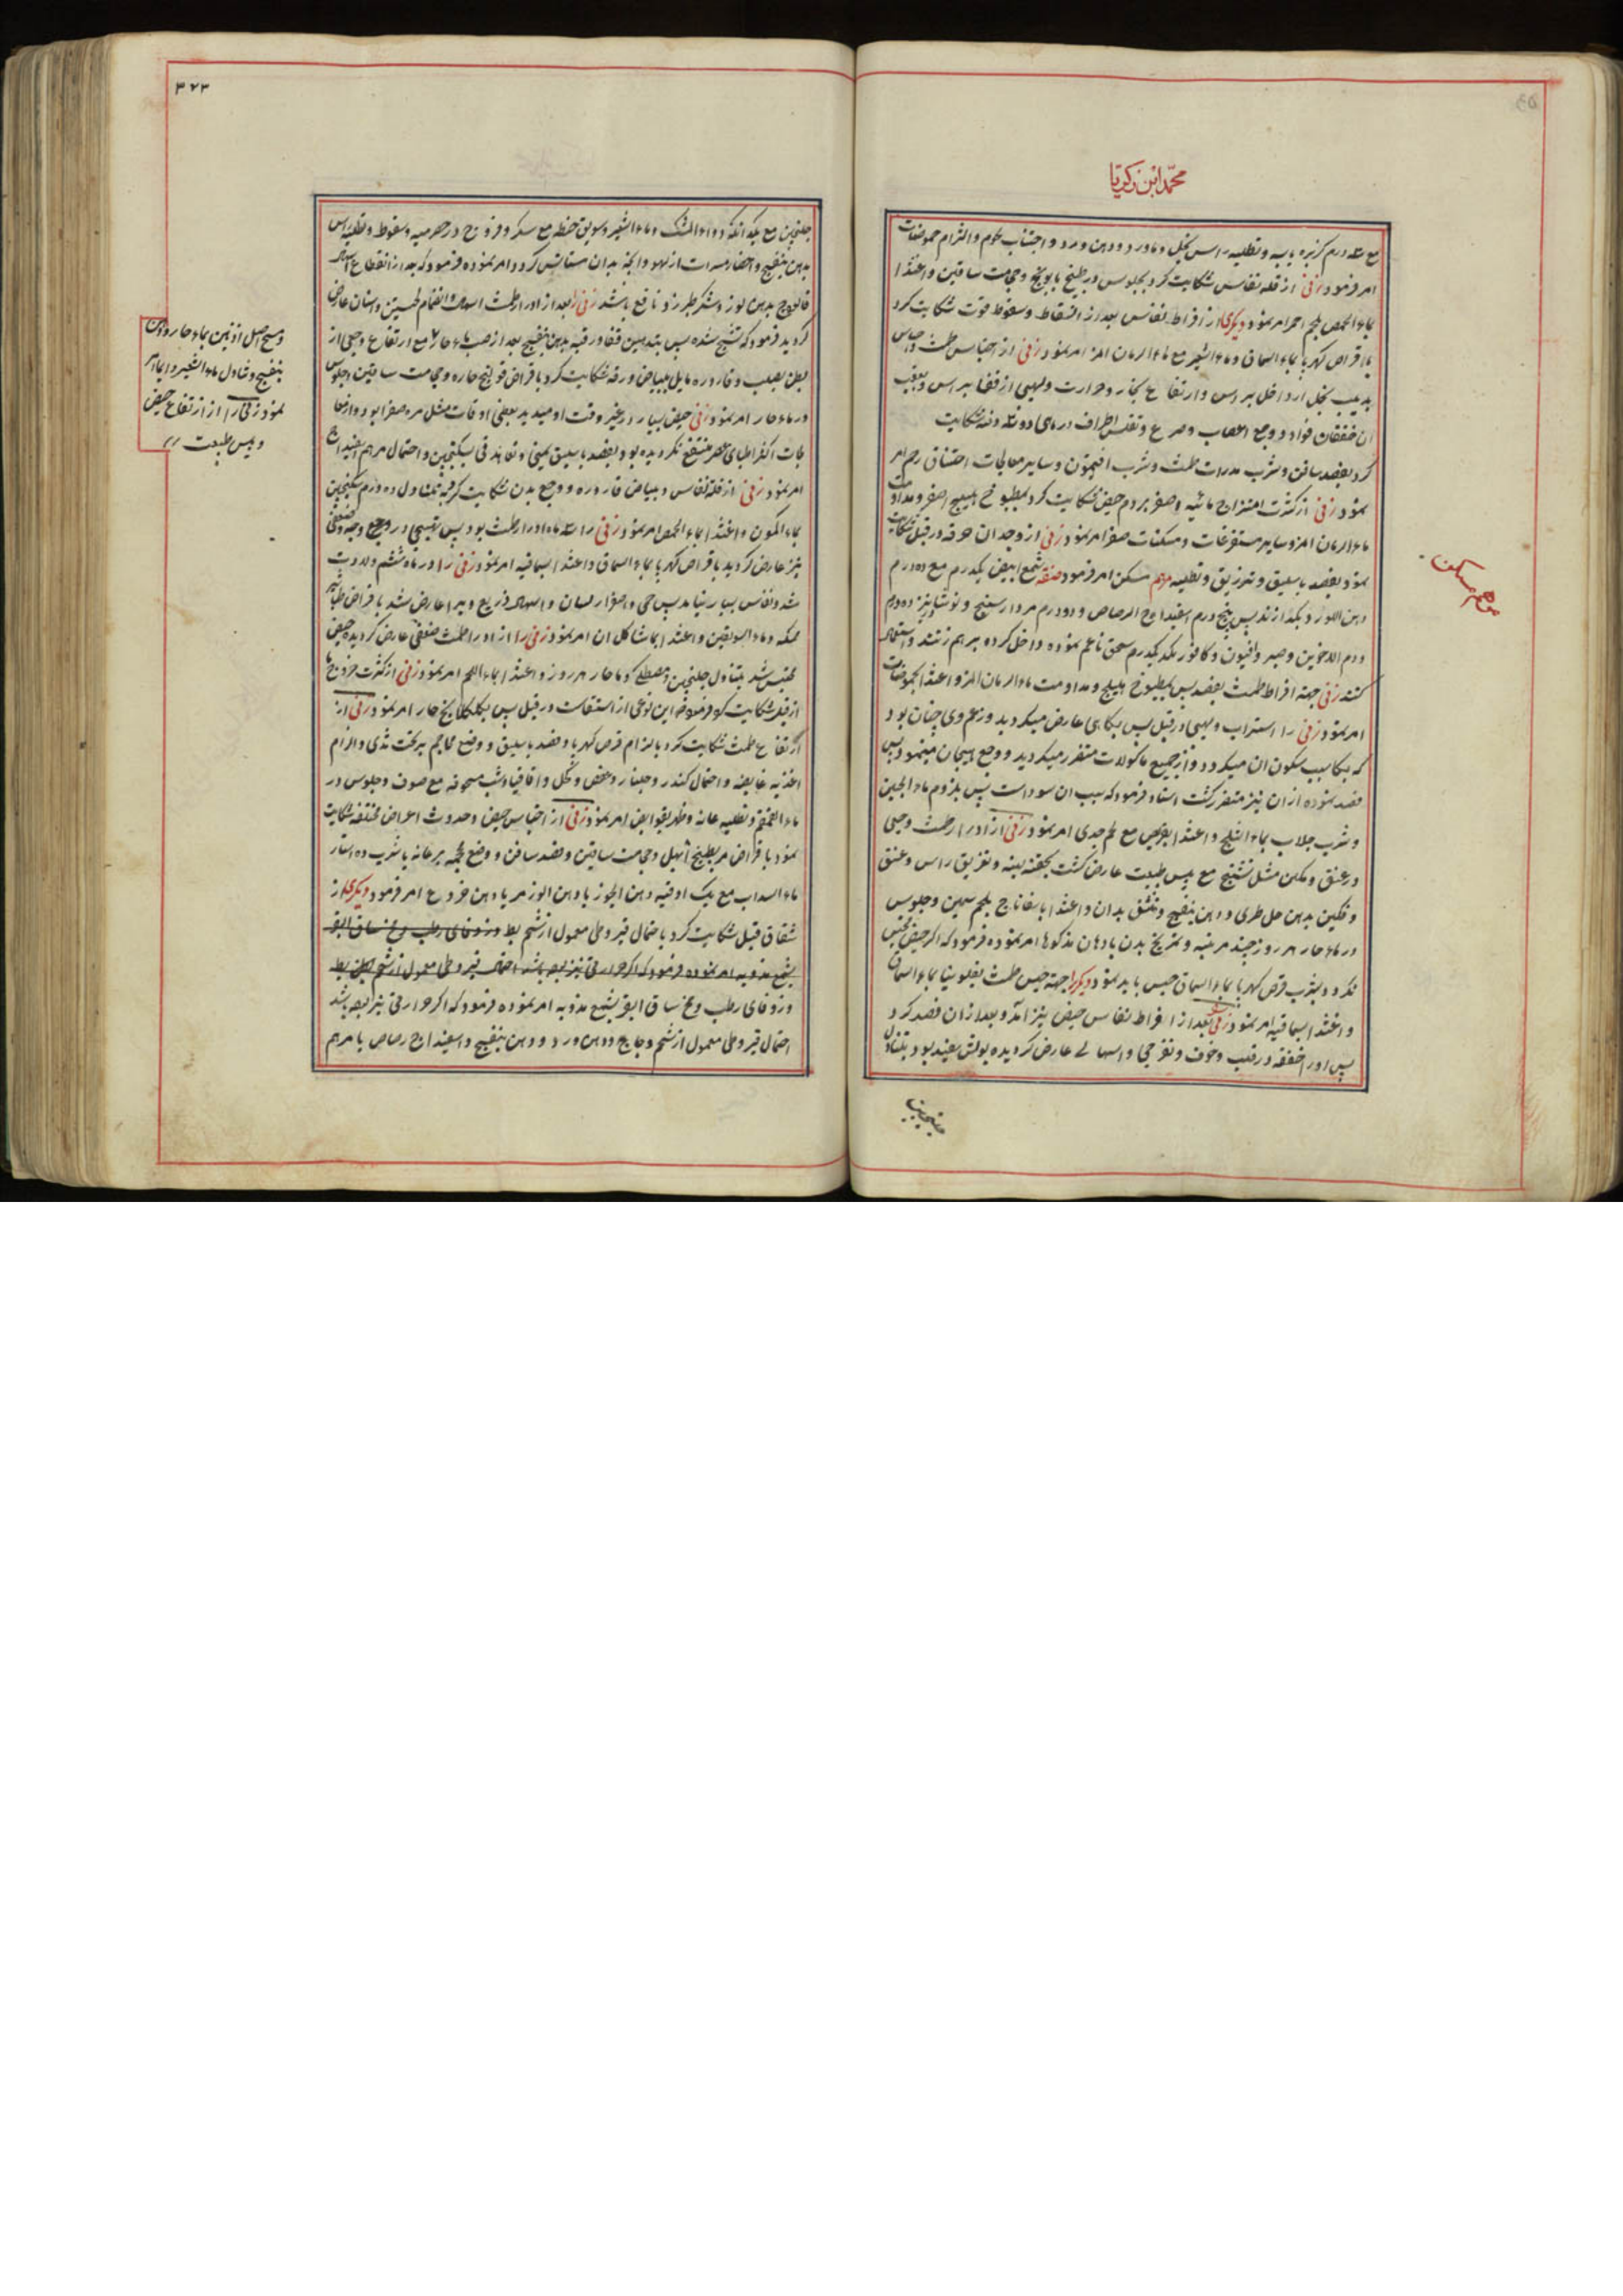 محمّد ابن زکریّا
مع درم کزبره یابسه و تطلیه راس بخل و ماورد و دهن ورد و اجتناب لحوم و التزام حموضات
امر فرمود زنی از قله نفاس شکایت کرد بجلوس در طبیخ بابونج و حجامت ساقین و اغتذا
بماء الحمص بلحم احمر امر نمود دیکری از افراط نفاس بعد از اسقاط و سقوط قوت شکایت کرد
باقراص کهربا بماء السماق و ماء الشعیر مع ماء الرمان المز امر نمود زنی از احتباس طمث
بخل ارد اخل براس و ارتفاع بخار و حرارت و لهیبی از قفا براس
ان خفقان فواد و وجع اعصاب و صرع و اطراف در ماهی شکایت
کرد بفصد سافن و شرب مدرات طمث و شرب افتیمون و سایر معالجات اختناق رحم امر
نمود زنی از کثرت امتزاج مائیه و اصفر بر دم حیض شکایت کرد بمطبوخ هلیلج اصفر و مداومت
ماء الرمان المز و سایر مستفرغات و مسکنات صفرا امر نمود زنی از وجدان حرقه در قبل شکایت
نمود بفصد باسلیق و تزریق و تطلیه مرهم مسکن امر فرمود صفته شمع ابیض یکدرم مع ده درم
دهن الورد بکدازند پس پنج درم اسفیداج الرصاص و دو درم مردارسنج
و دم الاخوین و صبر و افیون و کافور یکدرم سحق ناعم نموده داخل کرده برهم زنند و استعمال
کنند زنی جهة افراط طمث بفصد پس بمطبوخ هلیلج و مداومت ماء الرمان المز و اغتذا بحموضات
امر نمود زنی را اضطراب و لهیبی در قبل پس بکایی عارض میکردید و زعم وی چنان بود
که بکا سبب سکون ان میکردد و از جمیع ماکولات متنفر میکردید و وجع هیجان مینمود پس
فصد نموده از ان نیز متنفر کشت استاد فرمود که سبب ان سودا است پس بلزوم ماء الجبن
و شرب جلاب بماء الثلج و اغتذا بقریص مع لحم جدی امر نمود زنی از ادرار طمث وجعی
در عنق و فکین مثل تشنج مع یبس طبیعت عارض کشت بحقنه لینه و تغریق راس و عنق
و فکین بدهن حل طری و دهن بنفسج و تنشق بدان و اغتذا باسفاناج بلحم سمین و جلوس
در ماء حار هر روز چند مرتبه و تمریخ بدن بادهان مذکوره امر نموده فرمود که اکر حیض محتبس
نکردد بشرب قرص کهربا بماء السماق حبس باید نمود دیکرا جهة حبس طمث بفلونیا بماء السماق
و اغتذا بسماقیه امر نمود زنی بعد از افراط نفاس حیض نیز آمد و بعد از ان فصد کرد
پس او را خفقه در قلب و خوف و تفزعی و اسهالی عارض کردیده بولش سفید بود بتناول
جلنجبین
مرهم مسکن
۳۲۳
جلنجبین مع یکدانکه دواء المسک و ماء الشعیر و سویق حنطه مع سکر و فروج در حصرمیه و سعوط و تطلیه راس
بدهن بنفسج و احضار مسرات از لهو و انچه بدان مستانس کردد امر نموده فرمود که بعد از انقطاع اسهال
فالوذج بدهن لوز و شکر طبرزد نافع باشد زنی را بعد از ادرار طمث اسهال و انضمام لحیین و اسنان عارض
کردید فرمود که تشنج شده پس بتدهین قفا و رقبه بدهن بنفسج بعد از صب ماء حار مع ارتفاع وجعی از
بطن بصلب و قاروره مایل ببیاض و رقه شکایت کرد باقراص فو لنج حاره و حجامت ساقین و جلوس
در ماء حار امر نمود زنی حیض بسیار در غیر وقت او میدید بعضی اوقات مثل مره صفرا بود و از معا
لجات اکثر اطبای عصر منتفع نکردیده بود بفصد باسلیق یمینی و تعاهد قی بسکنجبین و احتمال مرهم اسفیداج
امر نمود زنی از قلة نفاس و بیاض قاروره و وجع بدن شکایت کرد بتناول ده درم سکنجبین
بماء الکمون و اغتذا بماء الحمص امر نمود زنی را سه ماه ادرار طمث بود پس تهیجی در وجه و ضعفی
نیز عارض کردید باقراص کهربا بماء السماق و اغتذا بسماقیه امر نمود زنی را در ماه ششم ولادت
شد و نفاس بسیار نیامد پس حمی و اصفرار لسان و اسهال ذریع ویرا عارض شد باقراص طباشیر
ممسکه و ماء السویقین و اغتذا بما شاکل ان امر نمود زنی را از ادرار طمث ضعفی عارض کردیده حیض
محتبس شد بتناول جلنجبین و مصطکی و ماء حار هر روز و اغتذا بماء اللحم امر نمود زنی از کثرت خروج
از قبل شکایت کرد فرمود که این نوعی از استسقاست در قبل پس بکلکلانج حار امر نمود زنی از
ارتفاع طمث شکایت کرد بالتزام قرص کهربا و فصد باسلیق و وضع محاجم بر تحت ثدی و الزام
اغذیه قابضه و احتمال کندر و جلنار و عفص و کحل و اقاقیا و شب مسحوقه مع صوف و جلوس در
ماء القمقم و تطلیه عانه و ظهر بقوابض امر نمود زنی از احتباس حیض و حدوث اعراض مختلفه شکایت
نمود باقراص مر بطبیخ ابهل و حجامت ساقین و فصد سافن و وضع محجمه بر عانه یا شرب ده استار
ماء السداب مع یک اوقیه دهن الجوز یا دهن اللوز المر یا دهن خروع امر فرمود دیکری از
شقاق قبل شکایت کرد باحتمال قیروطی معمول از شحم بط و زوفای رطب و مخ ساق البقر
بشمع مذوبه امر نموده فرمود که اکر حرارتی نیز بوده باشد احتمال قیروطی معمول از شحم بط
و زوفای رطب و مخ ساق البقر بشمع مذوبه امر نموده فرمود که اکر حرارتی نیز بوده باشد
احتمال قیروطی معمول از شحم دجاج و دهن ورد و دهن بنفسج و اسفیداج رصاص یا مرهم
و مسح اصل اذنین بماء حار و دهن
بنفسج و تناول ماء الشعیر و
نمود زنی را از ارتفاع حیض
و یبس طبیعت